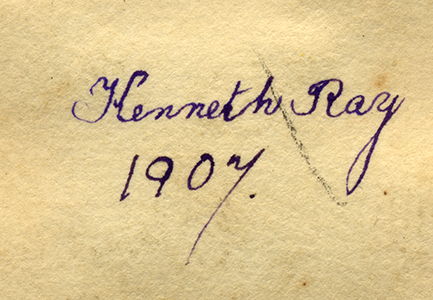 Kenneth Ray
1907.